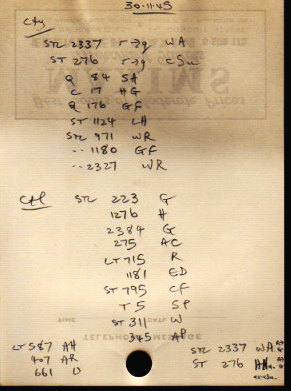 30-11-45
Cty
STL 2337 r→g WA
ST 276 r→g CSu
Q 84 SA
C 17 HG
Q 176 GF
ST 1124 LH
STL 971 WR
-- 1180 GF
-- 2327 WR
CH STL 223 G
1276 H
2384 G
275 AC
LT 715 R
1181 ED
ST 795 CF
T 5 SP
ST 311 W
345 AP
TIME DATE
TELEPHONE MESSAGE
LT 587 AH
407 AR
661 U
STL 2337 WA
ST 276